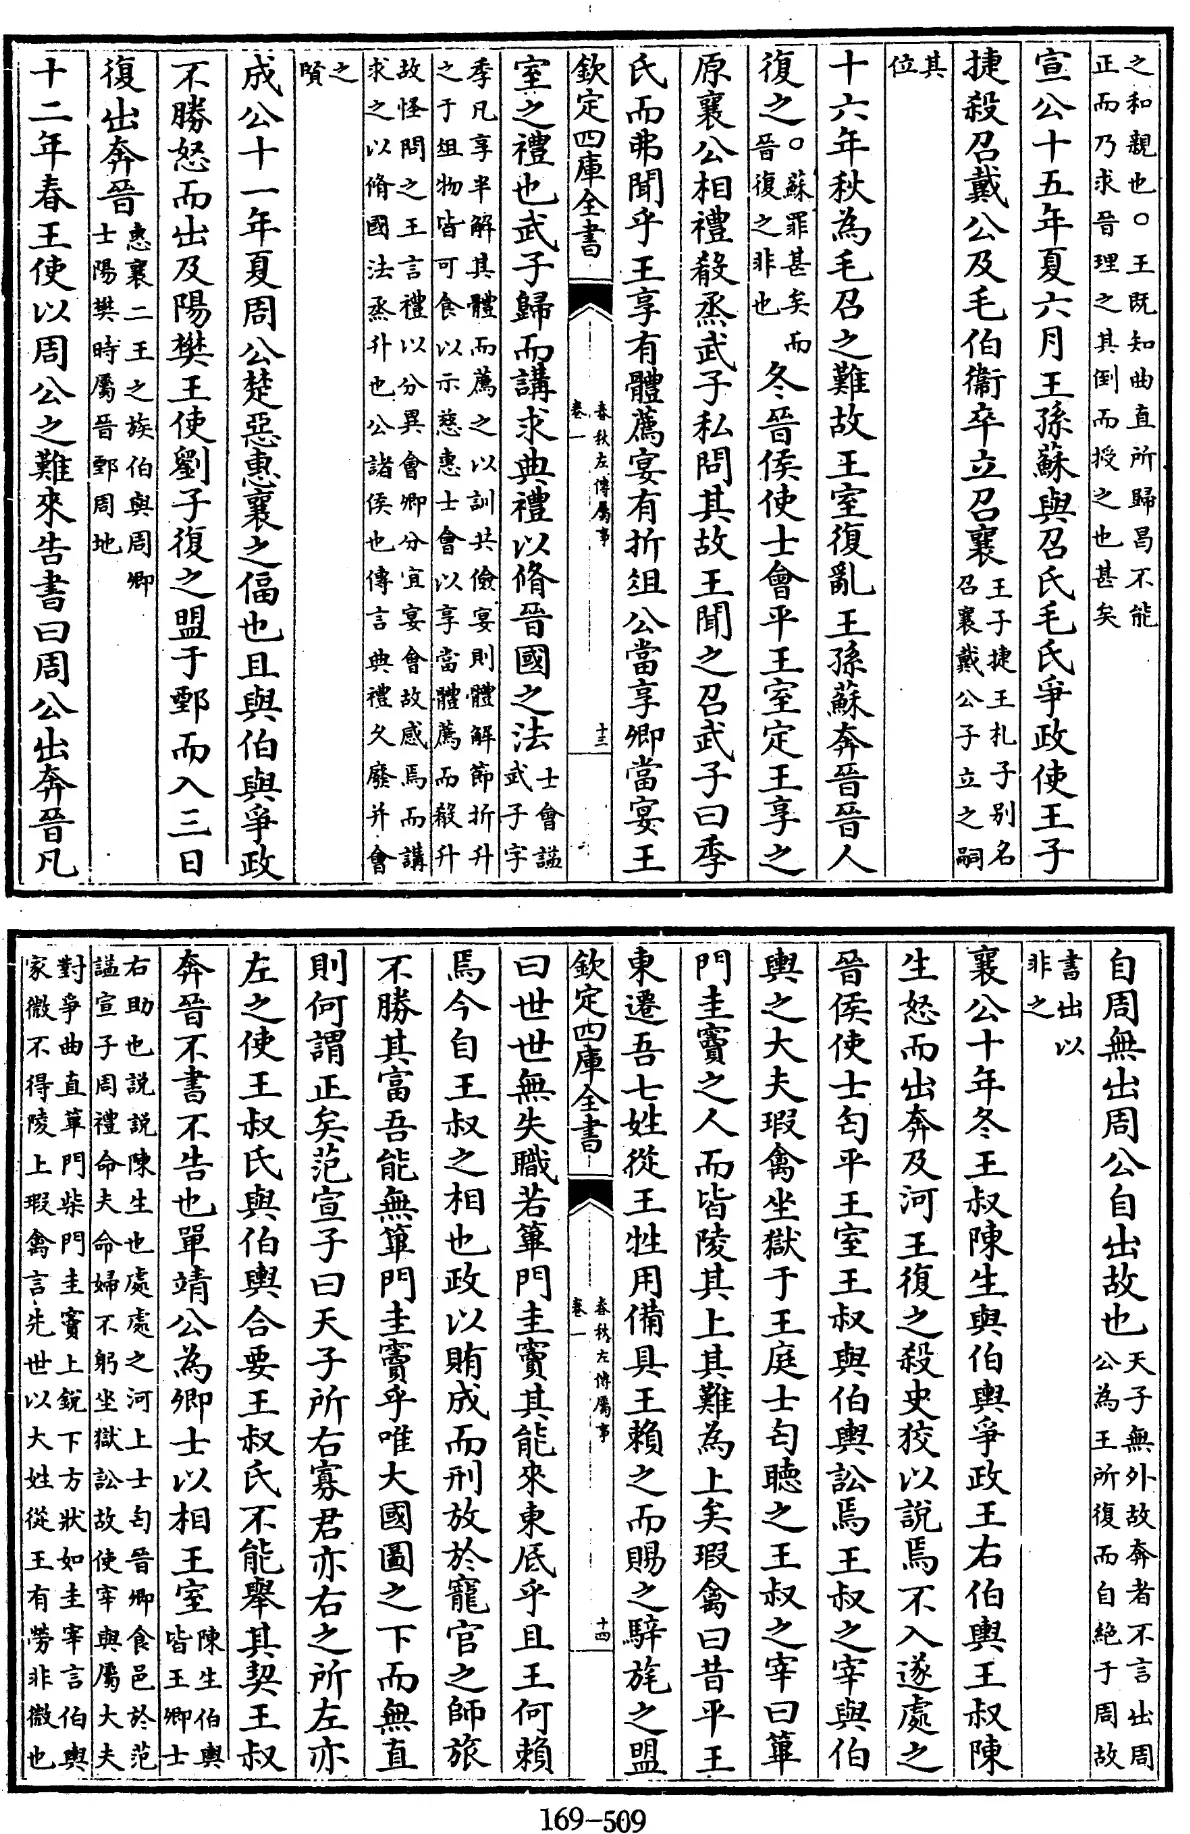 之和親也○王既知曲直所歸昌不能
正而乃求晉理之其倒而授之也甚矣
宣公十五年夏六月王孫蘇與召氏毛氏爭政使王子
捷殺召戴公及毛伯衞卒立召襄王子捷王札子别名
召襄戴公子立之嗣
其
位
十六年秋為毛召之難故王室復亂王孫蘇奔晉晉人
復之○蘇罪甚矣而
晉復之非也冬晉侯使士會平王室定王享之
原襄公相禮殽烝武子私問其故王聞之召武子曰季
氏而弗聞乎王享有體薦宴有折俎公當享卿當宴王
欽定四庫全書
春秋左傳屬事
卷一
十三
室之禮也武子歸而講求典禮以脩晉國之法士會諡
武子字
季凡享半解其體而薦之以訓共儉宴則體解節折升
之于俎物皆可食以示慈惠士會以享當體薦而殽升
故怪問之王言禮以分異會卿分宜宴會故感焉而講
求之以脩國法烝升也公諸侯也傳言典禮久廢并會
之
賢
成公十一年夏周公楚惡惠襄之偪也且與伯與爭政
不勝怒而出及陽樊王使劉子復之盟于鄄而入三日
復出奔晉惠襄二王之族伯與周卿
士陽樊時屬晉鄄周地
十二年春王使以周公之難來告書曰周公出奔晉凡
自周無出周公自出故也天子無外故奔者不言出周
公為王所復而自絶于周故
書出以
非之
襄公十年冬王叔陳生與伯輿爭政王右伯輿王叔陳
生怒而出奔及河王復之殺史狡以說焉不入遂處之
晉侯使士匄平王室王叔與伯輿訟焉王叔之宰與伯
輿之大夫瑕禽坐獄于王庭士匄聽之王叔之宰曰篳
門圭竇之人而皆陵其上其難為上矣瑕禽曰昔平王
東遷吾七姓從王牲用備具王賴之而賜之騂旄之盟
欽定四庫全書
春秋左傳屬事
卷一
十四
曰世世無失職若篳門圭竇其能來東底乎且王何賴
焉今自王叔之相也政以賄成而刑放於寵官之師旅
不勝其富吾能無篳門圭竇乎唯大國圖之下而無直
則何謂正矣范宣子曰天子所右寡君亦右之所左亦
左之使王叔氏與伯輿合要王叔氏不能舉其契王叔
奔晉不書不告也單靖公為卿士以相王室陳生伯輿
皆王卿士
右助也説説陳生也處處之河上士匄晉卿食邑於范
諡宣子周禮命夫命婦不躬坐獄訟故使宰與屬大夫
對爭曲直篳門柴門圭竇上銳下方狀如圭宰言伯輿
家微不得陵上瑕禽言先世以大姓從王有勞非微也
169-509